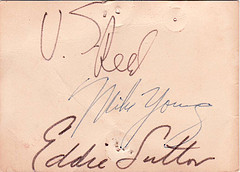 U. S. Reed
Mike Young
Eddie Sutton